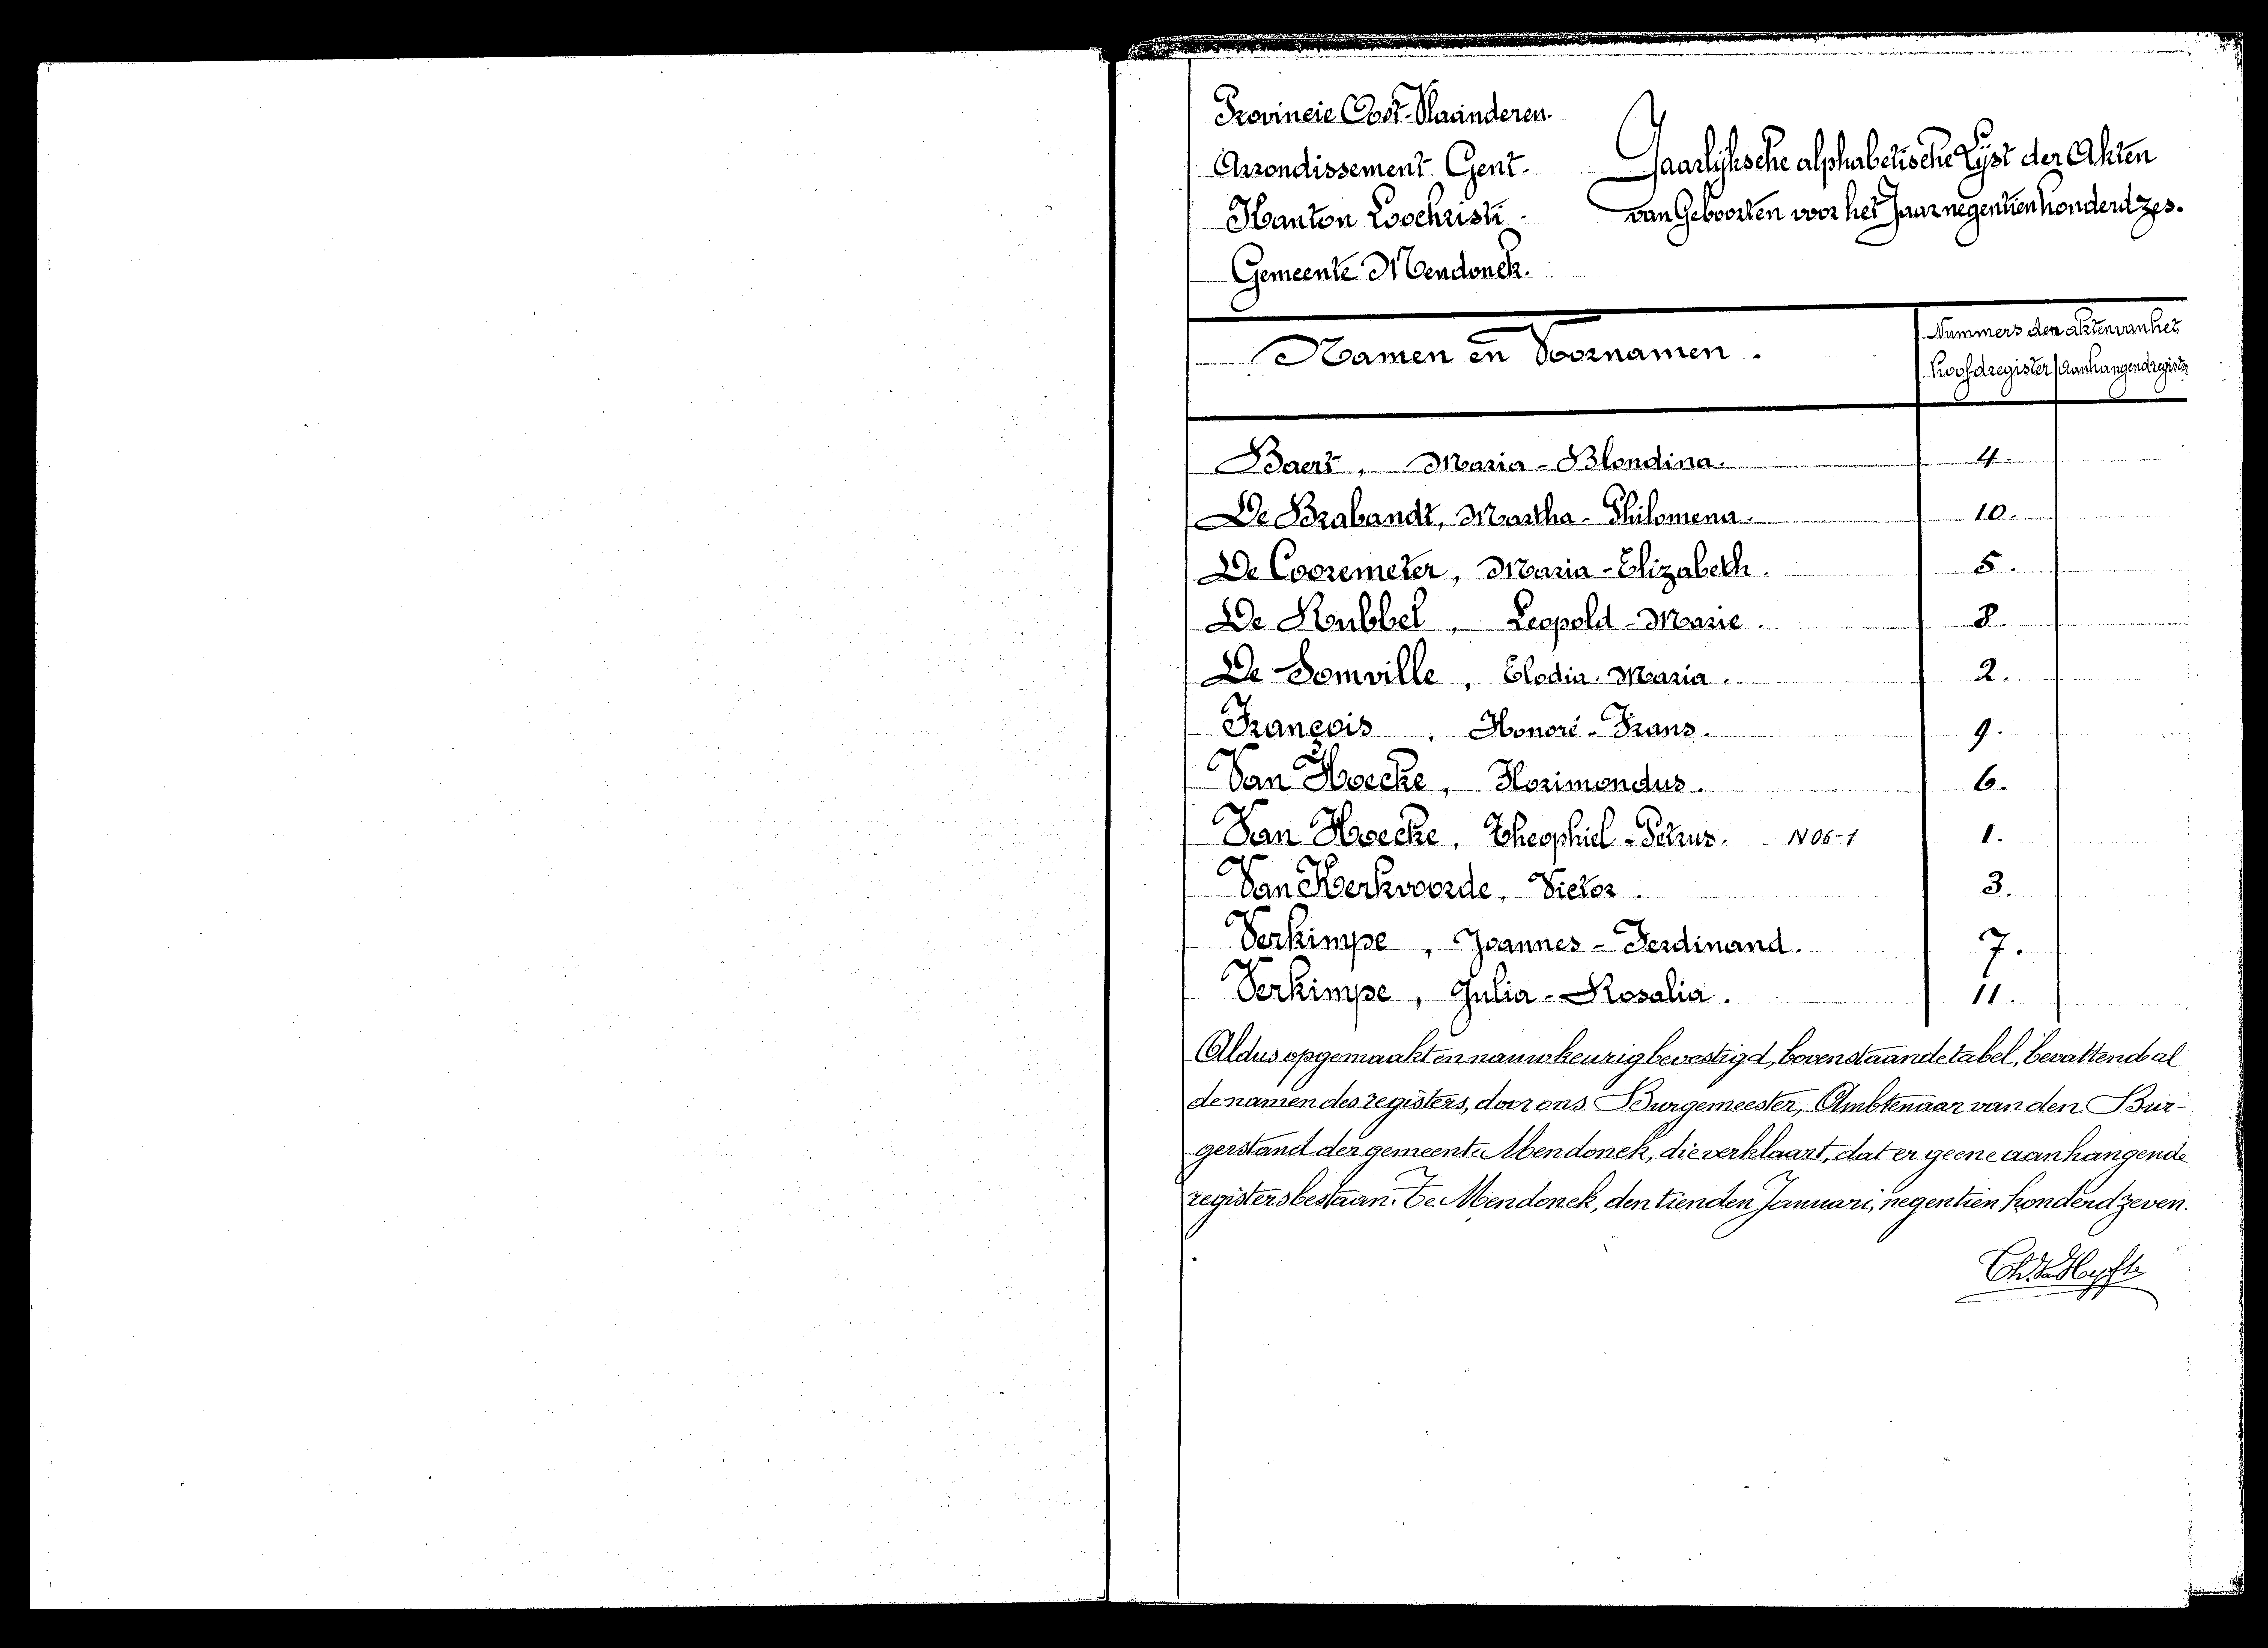 Provincie Oost-Vlaanderen.
Arrondissement Gent.
Kanton Loochristi.
Gemeente Mendonck.
Jaarlijksche alphabetische Lijst der Akten
van Geboorten voor het Jaar negentien honderd zes.
Namen en Voornamen.
Nummers der akten van het
hoofdregister / Aanhangendregister
Baert, Maria-Blondina. 4.
De Brabandt, Martha-Philomena. 10.
De Cooremeter, Maria-Elizabeth. 5.
De Knubbel, Leopold-Marie. 8.
De Somville, Elodia-Maria. 2.
François, Honoré-Frans. 9.
Van Hoecke, Florimondus. 6.
Van Hoecke, Theophiel-Petrus. N06-1 1.
Van Kerkvoorde, Victor. 3.
Verkimpe, Joannes-Ferdinand. 7.
Verkimpe, Julia-Rosalia. 11.
Aldus opgemaakt en nauwkeurig bevestigd, bovenstaande tabel, bevattende al
de namen des registers, door ons Burgemeester, Ambtenaar van den Bur-
gerstand der gemeente Mendonck, die verklaart, dat er geene aanhangende
registers bestaan. Te Mendonck, den tienden Januari, negentien honderd zeven.